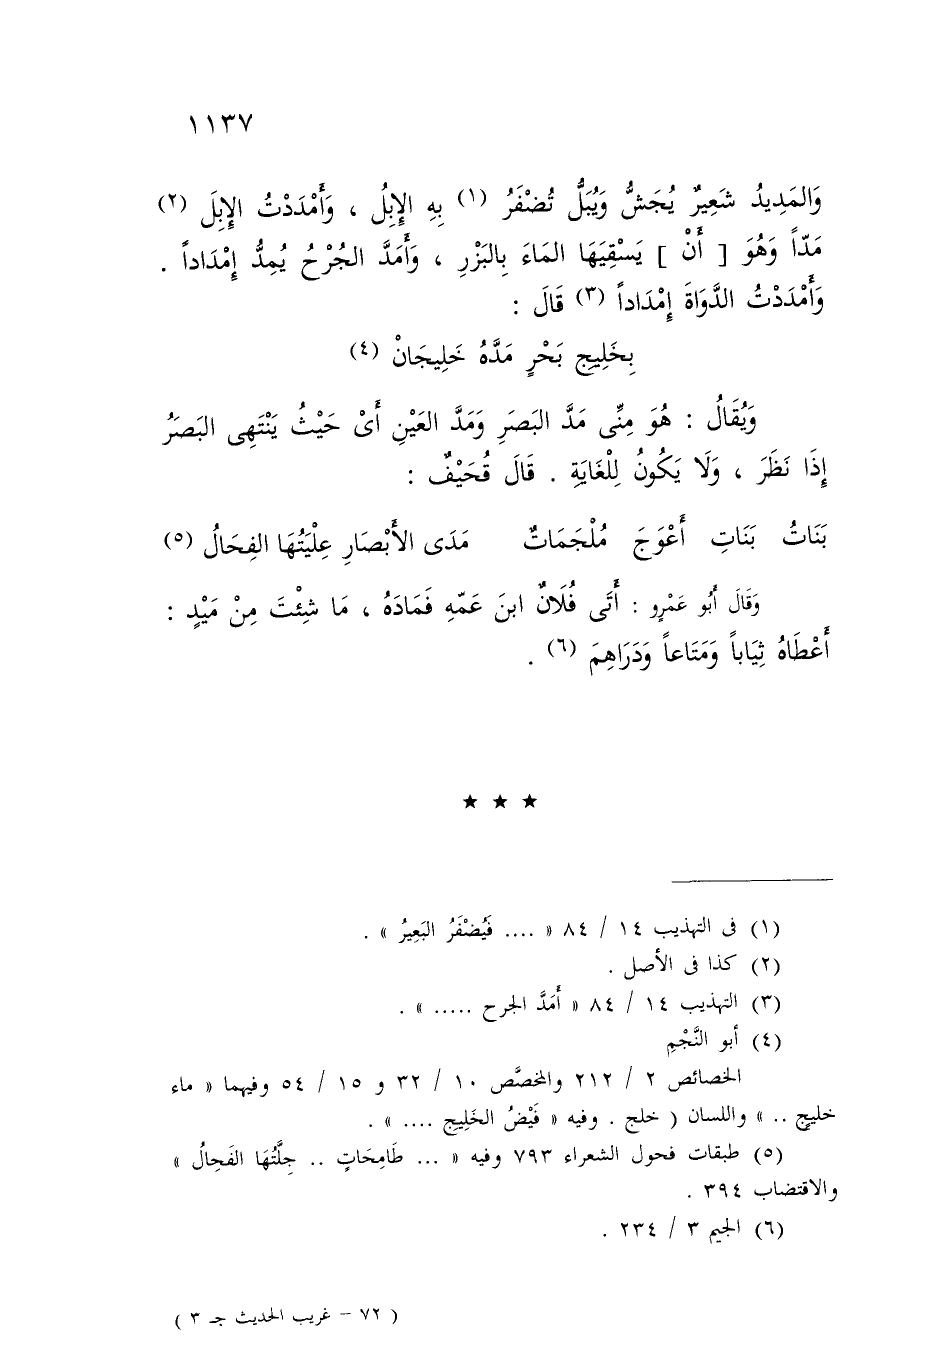 ١١٣٧
وَالمَدِيدُ شَعِيرٌ يُجَشُّ وَيُبَلُّ تُضْفَرُ (١) بِهِ الإِبِلُ ، وَأَمْدَدْتُ الإِبِلَ (٢)
مَدّاً وَهُوَ [ أَنْ ] يَسْقِيَهَا المَاءَ بِالبَزْرِ ، وَأَمَدَّ الجُرْحُ يُمِدُّ إِمْدَاداً .
وَأَمْدَدْتُ الدَّوَاةَ إِمْدَاداً (٣) قَالَ :
بِخَلِيجِ بَحْرٍ مَدَّهُ خَلِيجَانْ (٤)
وَيُقَالُ : هُوَ مِنِّى مَدَّ البَصَرِ وَمَدَّ العَيْنِ أَىْ حَيْثُ يَنْتَهِى البَصَرُ
إِذَا نَظَرَ ، وَلَا يَكُونُ لِلْغَايَةِ . قَالَ قُحَيْفٌ :
بَنَاتُ بَنَاتِ أَعْوَجَ مُلْجَمَاتٌ مَدَى الأَبْصَارِ عِلْيَتُهَا الفِحَالُ (٥)
وَقَالَ أَبُو عَمْرٍو : أَتَى فُلَانٌ ابنَ عَمّهِ فَمَادَهُ ، مَا شِئْتَ مِنْ مَيْدٍ :
أَعْطَاهُ ثِيَاباً وَمَتَاعاً وَدَرَاهِمَ (٦) .
★ ★ ★
(١) فى التهذيب ١٤ / ٨٤ « .... فَيُضْفَرُ البَعِيرُ » .
(٢) كذا فى الأصل .
(٣) التهذيب ١٤ / ٨٤ « أَمَدَّ الجرح ..... » .
(٤) أبو النَّجْمِ
الخصائص ٢ / ٢١٢ والمخصَّص ١٠ / ٣٢ و ١٥ / ٥٤ وفيهما « ماء
خليجٍ .. » واللسان ( خلج . وفيه « فَيْضُ الخَلِيجِ .... » .
(٥) طبقات فحول الشعراء ٧٩٣ وفيه « ... طَامِحَاتٍ .. جِلَّتُهَا الفَحِالُ »
والاقتضاب ٣٩٤ .
(٦) الجيم ٣ / ٢٣٤ .
( ٧٢ – غريب الحديث جـ ٣ )